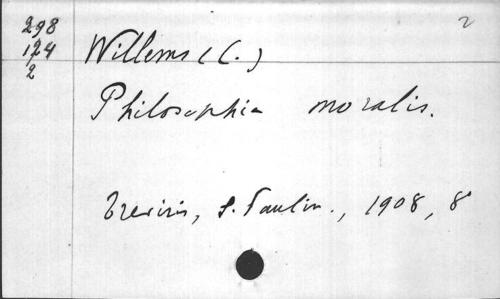 298
124
2
2
Willems (C.)
Philosophia moralis.
Treviris, S. Paulin., 1908, 8°